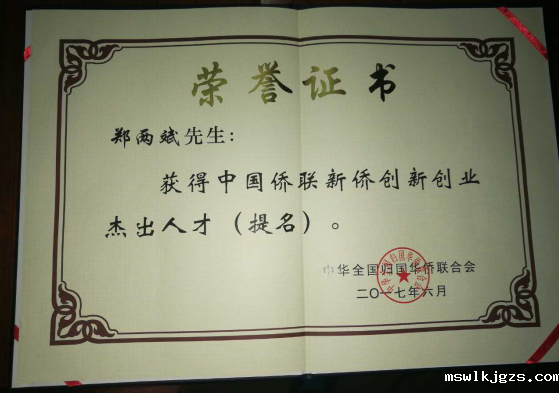 荣誉证书
郑两斌先生：
获得中国侨联新侨创新创业
杰出人才（提名）。
中华全国归国华侨联合会
二〇一七年六月
mswlkjgzs.com